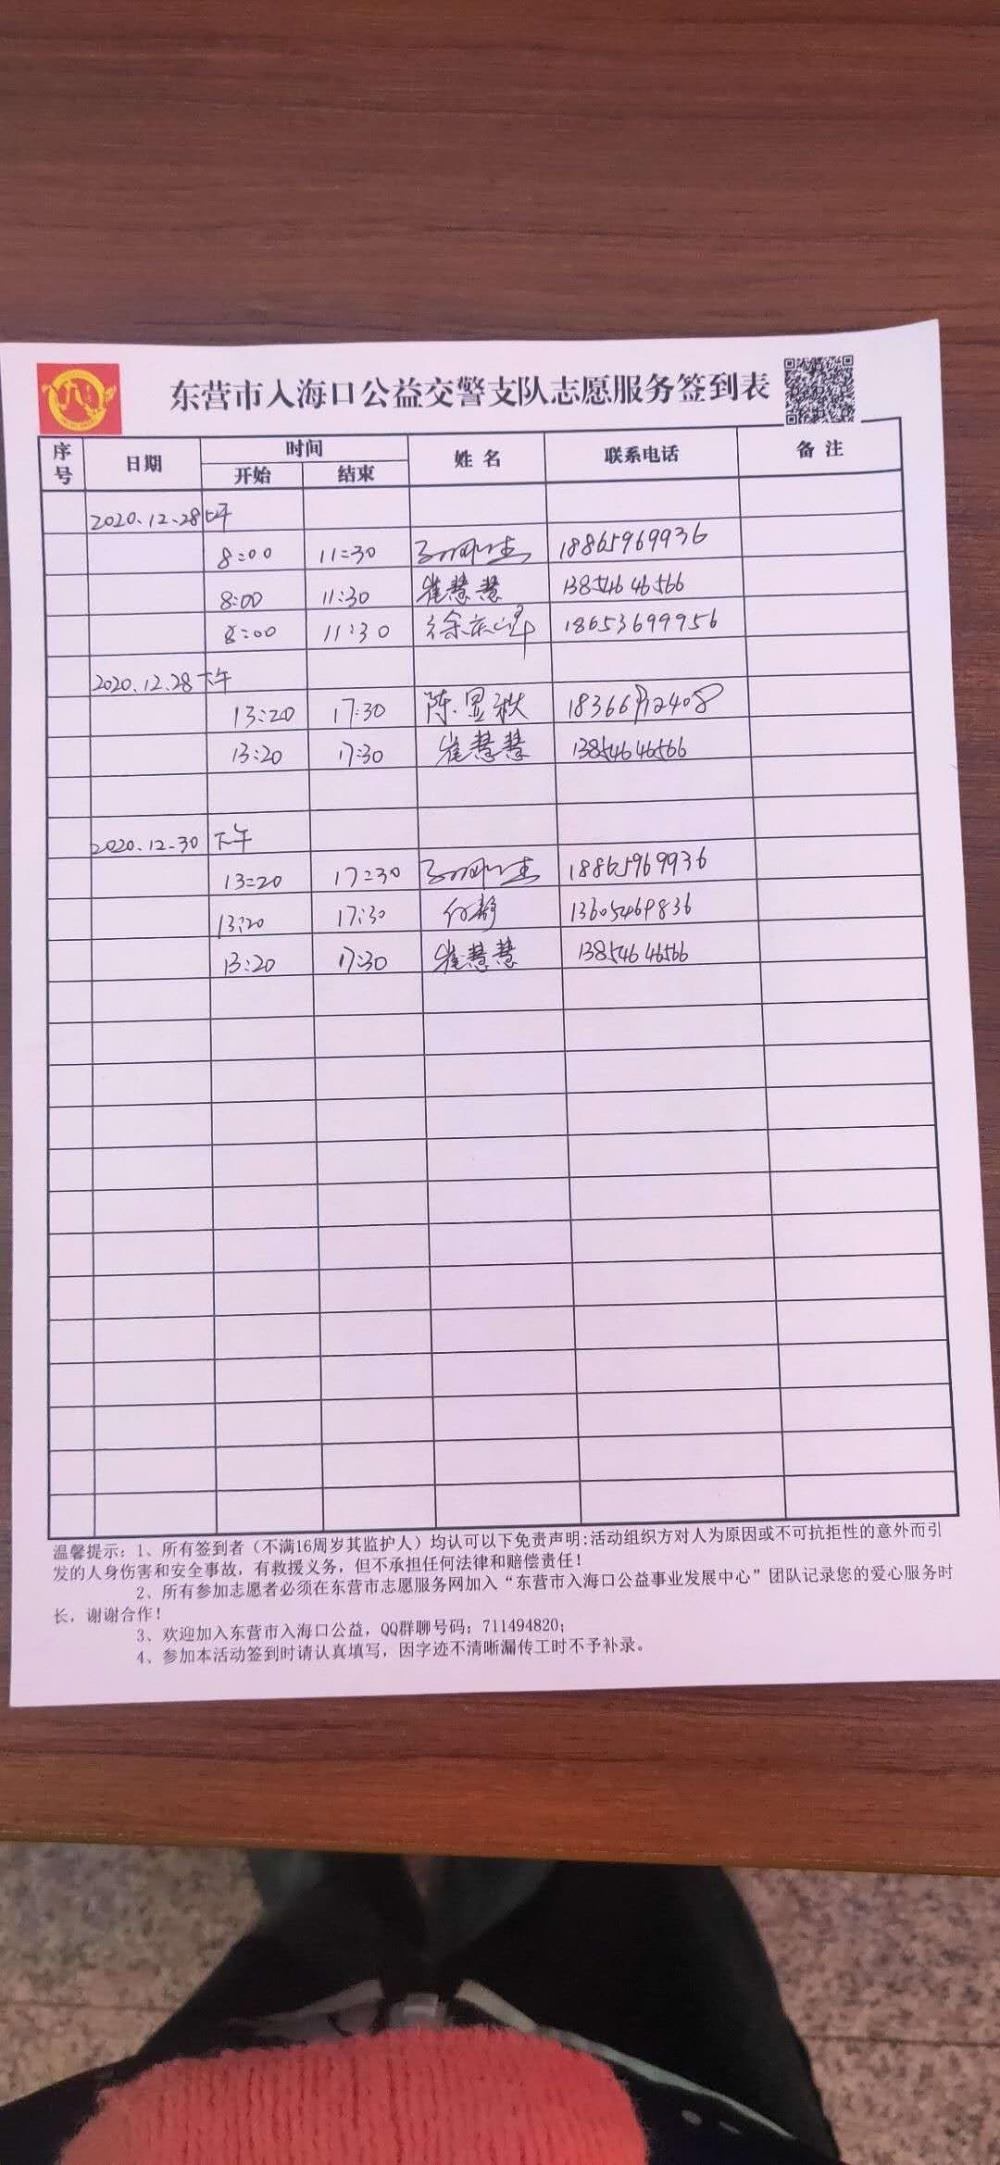 东营市入海口公益交警支队志愿服务签到表
序号 日期 时间 姓名 联系电话 备注
开始 结束
2020.12.28 上午
8:00 11:30 18865969936
8:00 11:30 崔慧慧 13854646566
8:00 11:30 18653699956
2020.12.28 下午
13:20 17:30 陈显秩
13:20 17:30 崔慧慧 13854646566
2020.12.30 下午
13:20 17:30 18865969936
13:20 17:30 何静 13605469836
13:20 17:30 崔慧慧 13854646566
温馨提示：1、所有签到者（不满16周岁其监护人）均认可以下免责声明:活动组织方对人为原因或不可抗拒性的意外而引
发的人身伤害和安全事故，有救援义务，但不承担任何法律和赔偿责任！
2、所有参加志愿者必须在东营市志愿服务网加入“东营市入海口公益事业发展中心”团队记录您的爱心服务时
长，谢谢合作！
3、欢迎加入东营市入海口公益，QQ群聊号码：711494820；
4、参加本活动签到时请认真填写，因字迹不清晰漏传工时不予补录。